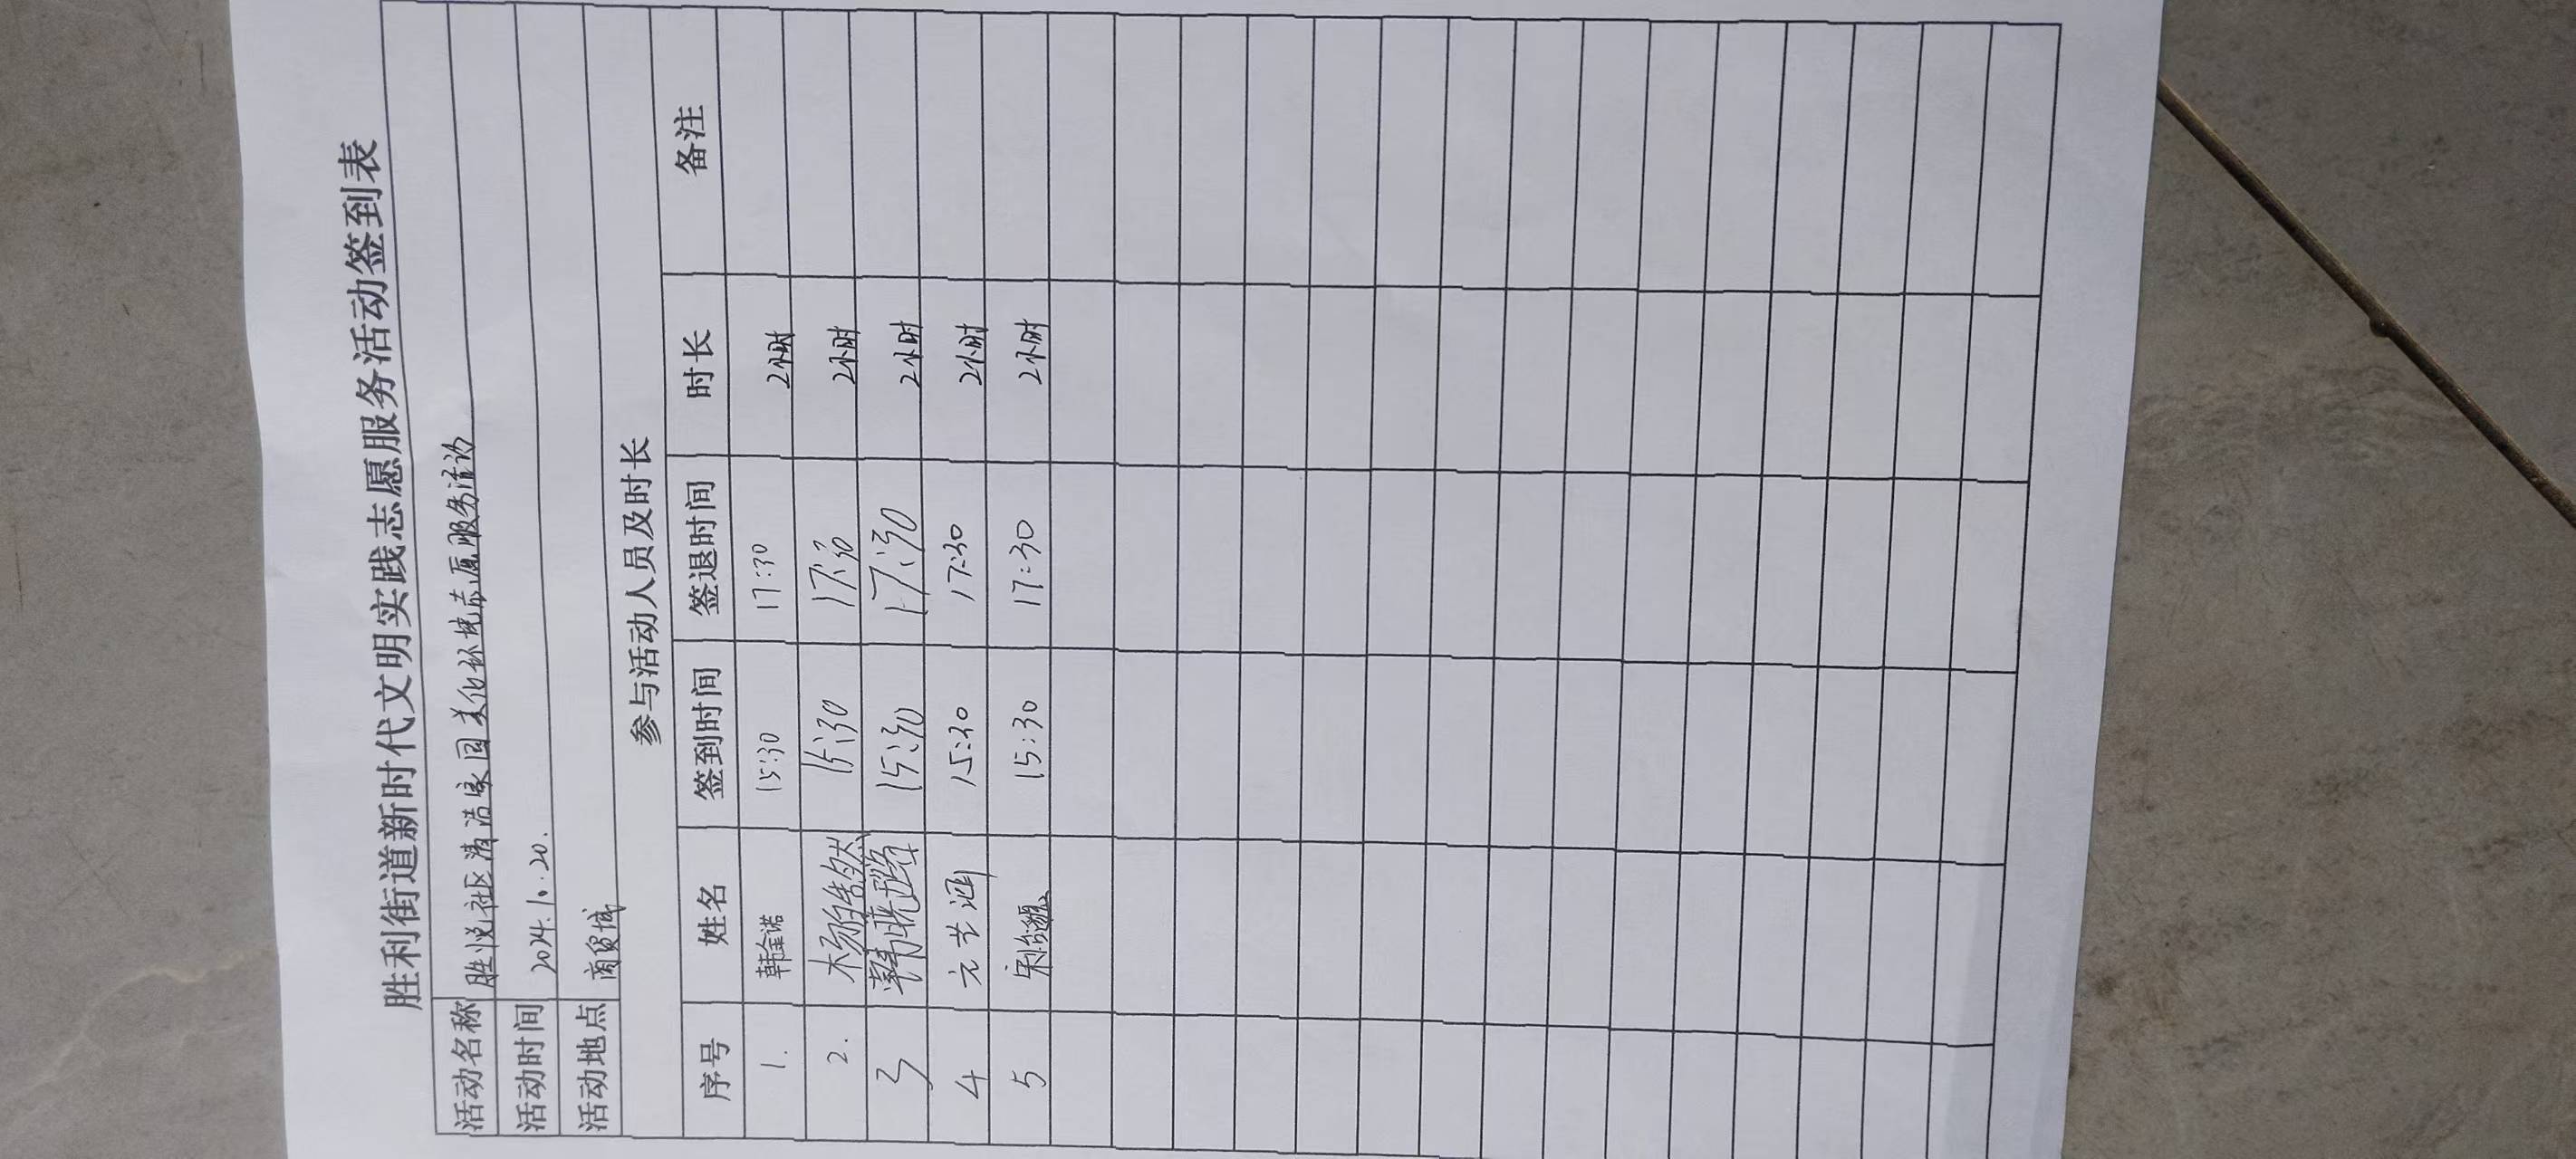 胜利街道新时代文明实践志愿服务活动签到表
活动名称 胜悦社区清洁家园美化环境志愿服务活动
活动时间 2024.10.20.
活动地点 商贸城
参与活动人员及时长
序号 姓名 签到时间 签退时间 时长 备注
1. 韩金诺 15:30 17:30 2小时
2. 杨雅然 15:30 17:30 2小时
3 韩晓璐 15:30 17:30 2小时
4 元艺涵 15:30 17:30 2小时
5 15:30 17:30 2小时